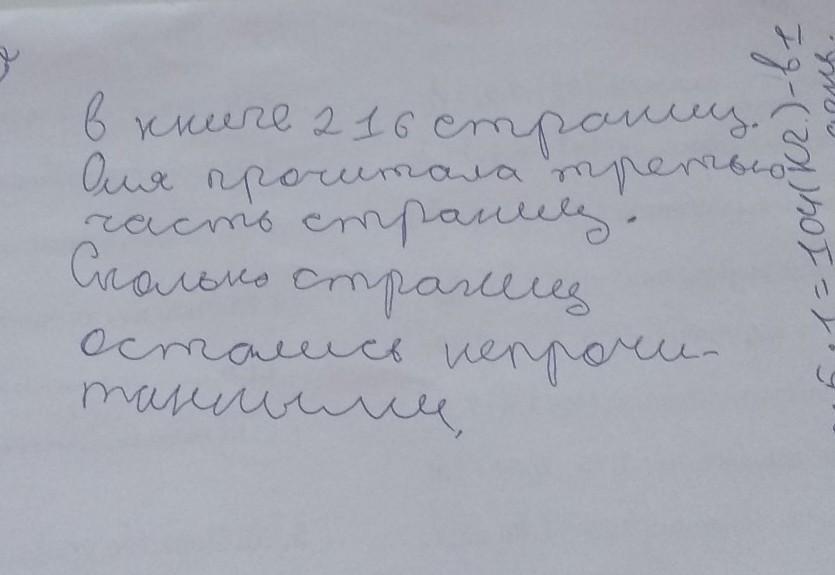 В книге 216 страниц.
Оля прочитала третью
часть страниц.
Сколько страниц
остались непрочи-
танными,
1=104(кг.)-в 1